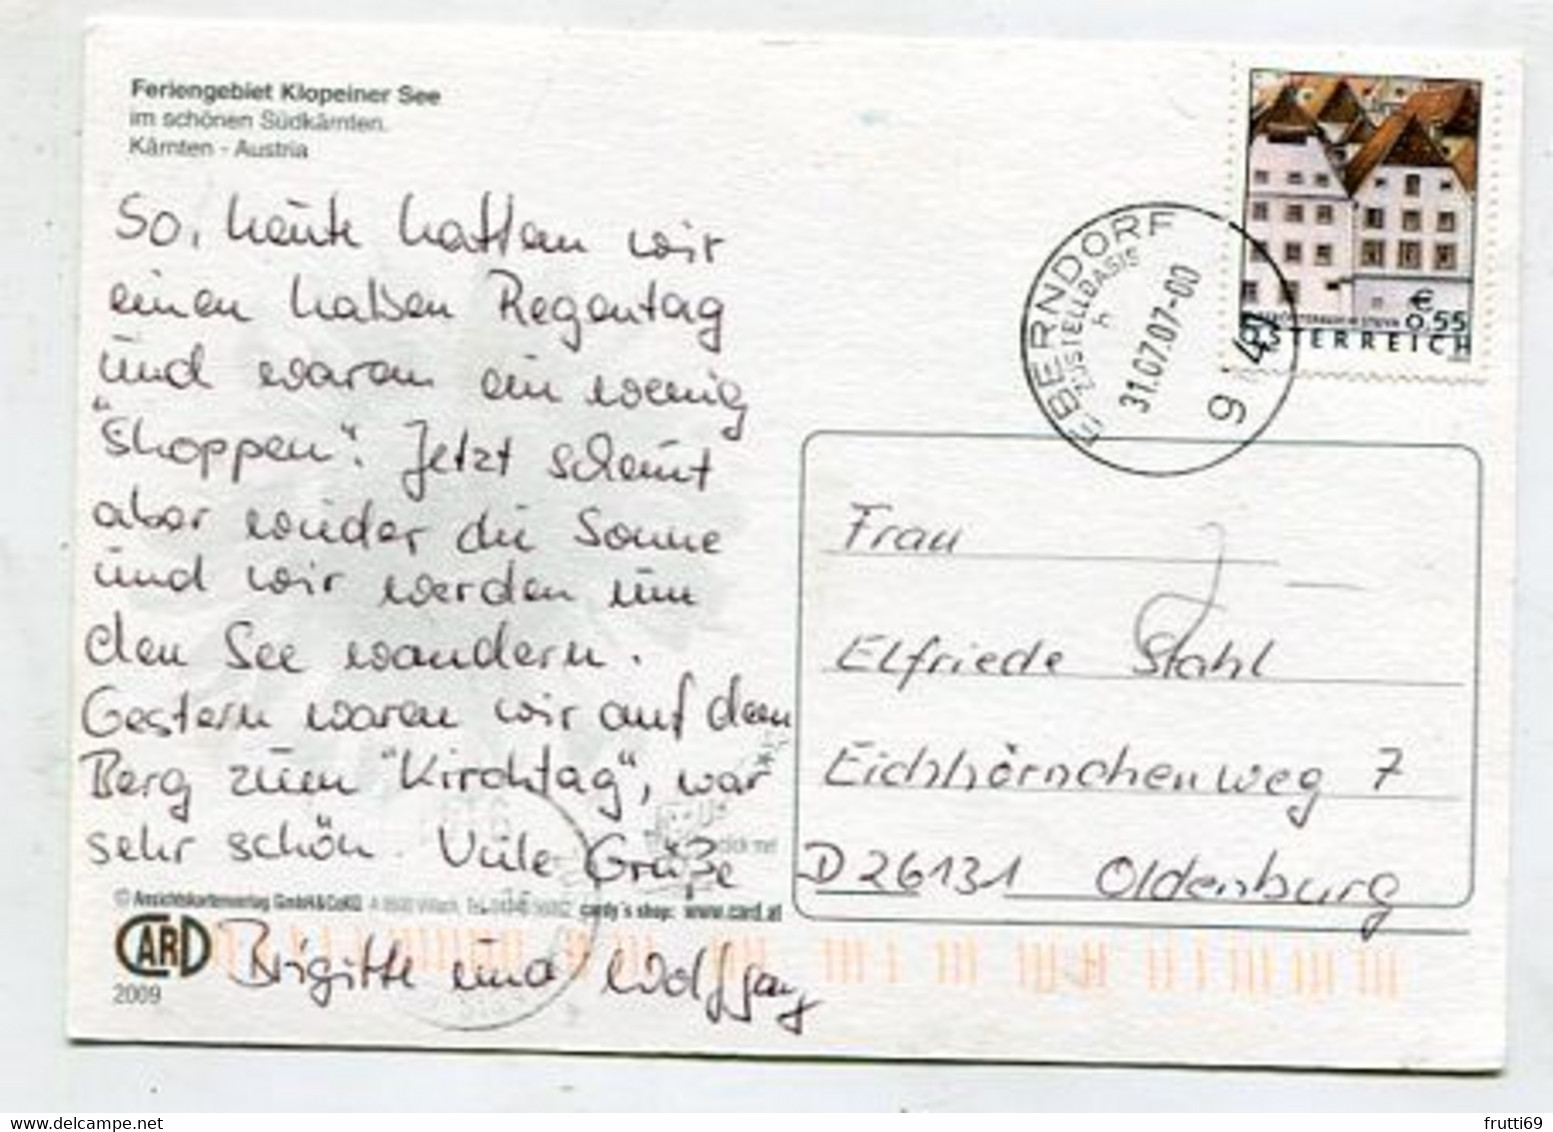 Feriengebiet Klopeiner See
im schönen Südkärnten.
Kärnten - Austria
So, heute hatten wir
einen halben Regentag
und waren ein wenig
"shoppen". Jetzt scheint
aber wieder die Sonne
und wir werden um
den See wandern.
Gestern waren wir auf dem
Berg zum "Kirchtag", war
sehr schön. Viele Grüße
Brigitte und Wolfgang
© Ansichtskartenverlag GmbH & CoKG cardy's shop: www.card.at
click me!
CARD
2009
€
0,55
ÖSTERREICH
EBERNDORF
ZUSTELLBASIS
h
31.07.07-00
9 4
Frau
Elfriede Stahl
Eichhörnchenweg 7
D 26131 Oldenburg
frutti69